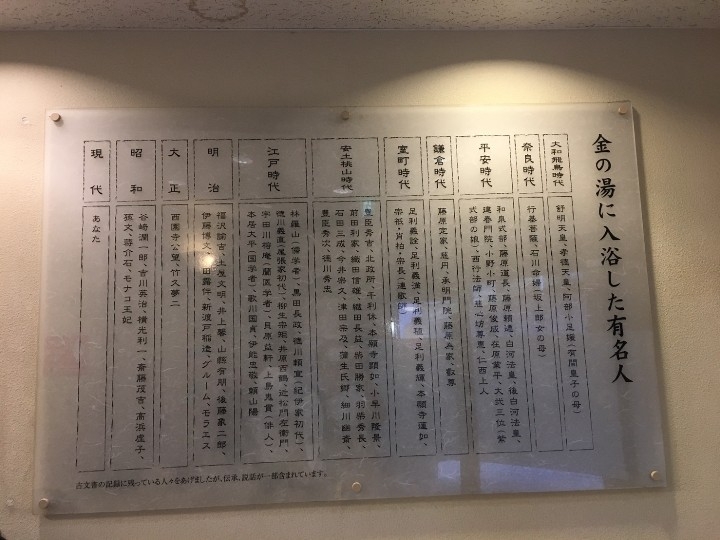 金の湯に入浴した有名人
大和飛鳥時代
舒明天皇、孝徳天皇、阿部小足媛(有間皇子の母)
奈良時代
行基菩薩、石川命婦(坂上郎女の母)
平安時代
和泉式部、藤原道長、藤原頼通、白河法皇、後白河法皇、
建春門院、小野小町、藤原俊成、在原業平、大弐三位(紫
式部の娘)、西行法師、慈心坊尊恵、仁西上人
鎌倉時代
藤原定家、慈円、承明門院、藤原為家、叡尊
室町時代
足利義詮、足利義満、足利義稙、足利義輝、本願寺蓮如、
宗祇・肖柏・宗長(連歌師)
安土桃山時代
豊臣秀吉、北政所、千利休、本願寺顕如、小早川隆景、
前田利家、織田信雄、織田長益、柴田勝家、羽柴秀長、
石田三成、今井宗久、津田宗及、蒲生氏郷、細川幽斎、
豊臣秀次、徳川秀忠
江戸時代
林羅山(儒学者)、黒田長政、徳川頼宣(紀伊家初代)、
徳川義直(尾張家初代)、柳生宗矩、井原西鶴、近松門左衛門、
宇田川榕庵(蘭医学者)、貝原益軒、上島鬼貫(俳人)、
本居大平(国学者)、歌川国貞、伊能忠敬、頼山陽
明治
福沢諭吉、土屋文明、井上馨、山縣有朋、後藤象二郎、
伊藤博文、幸田露伴、新渡戸稲造、グルーム、モラエス
大正
西園寺公望、竹久夢二
昭和
谷崎潤一郎、吉川英治、横光利一、斎藤茂吉、高浜虚子、
孫文、蒋介石、モナコ王妃
現代
あなた
古文書の記録に残っている人々をあげましたが、伝承、説話が一部含まれています。